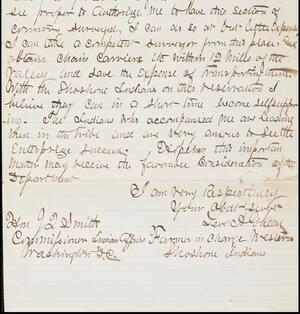 see proper to authorize me to have this section of
country surveyed, I can do so at but little expense
I can take a competent surveyor from this place. and
obtain Chain Carriers &c within 12 miles of the
valley and save the expense of transporting them.
With the Shoshone Indians on this reservation I
believe they can in a short time become selfsuppor
ing. The Indians who accompanied me are leading
Men in the tribe and are very anxious to see the
Enterprise succeed. Hoping this important
matter may receive the favorable consideration of the
Department
I am very Respectfully
Your Obdt Servt
Levi A
Hon J Q Smith
Commissioner Indian Affairs Farmer in Charge Western
Washington D.C. Shoshone Indians